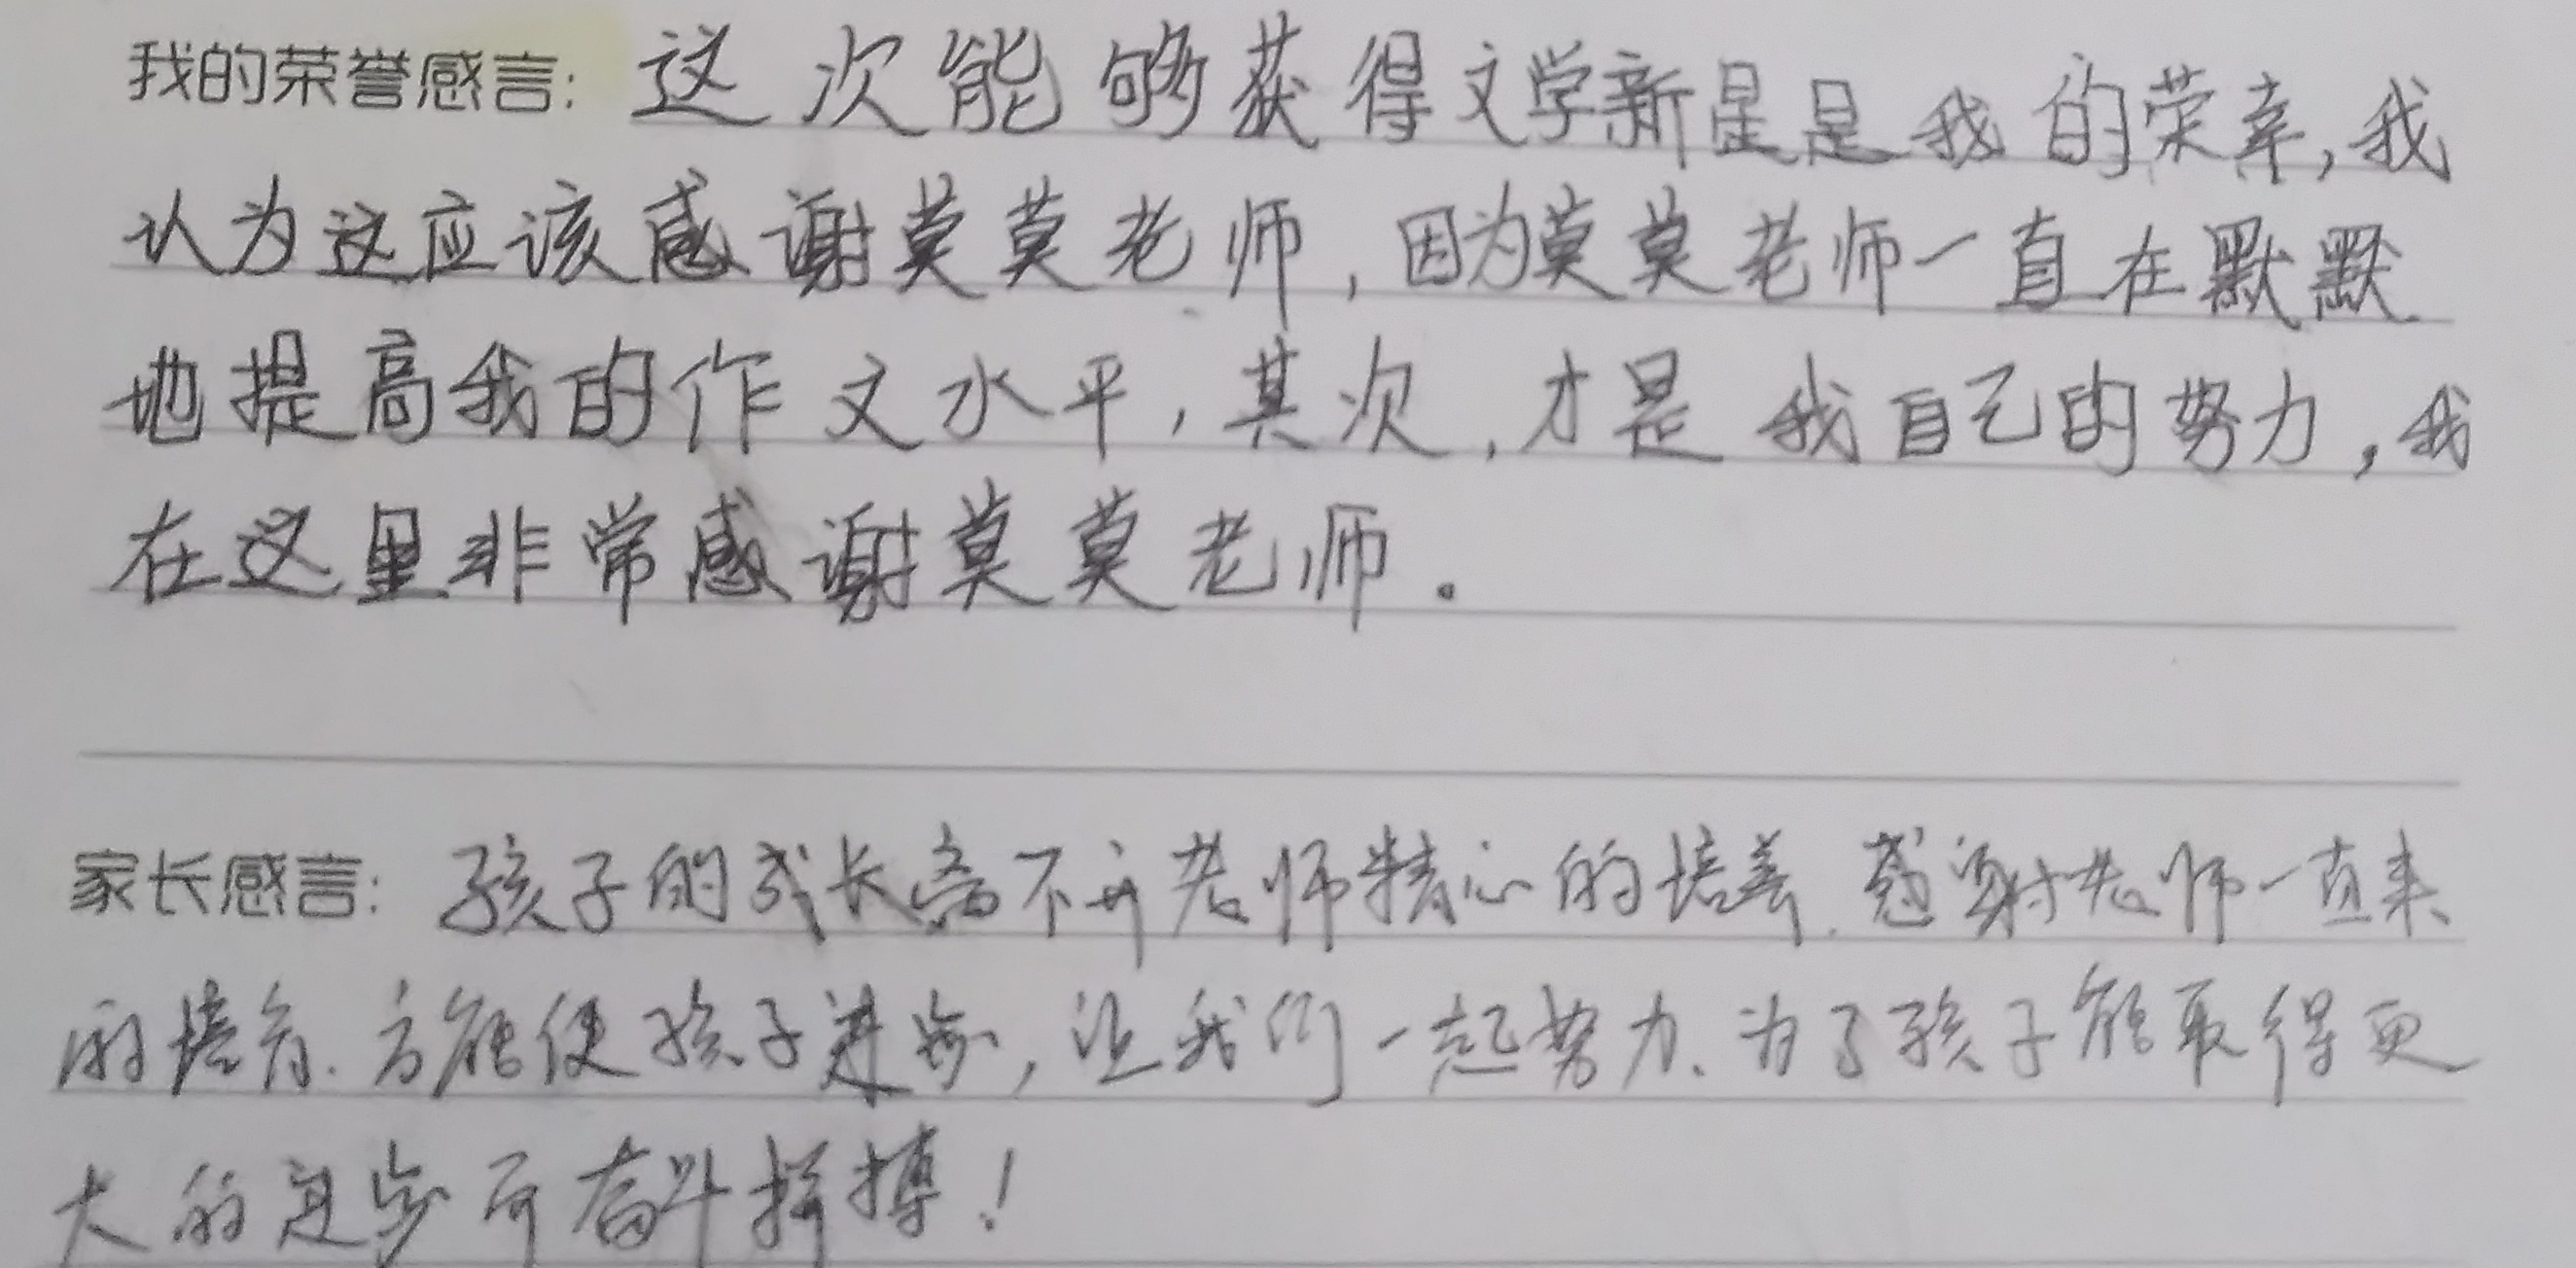 我的荣誉感言：这次能够获得文学新星是我的荣幸，我
认为这应该感谢莫莫老师，因为莫莫老师一直在默默
地提高我的作文水平，其次，才是我自己的努力，我
在这里非常感谢莫莫老师。
家长感言：孩子的成长离不开老师精心的培养．感谢老师一直来
的培育．方能使孩子进步，让我们一起努力、为了孩子能取得更
大的进步而奋斗拼搏！